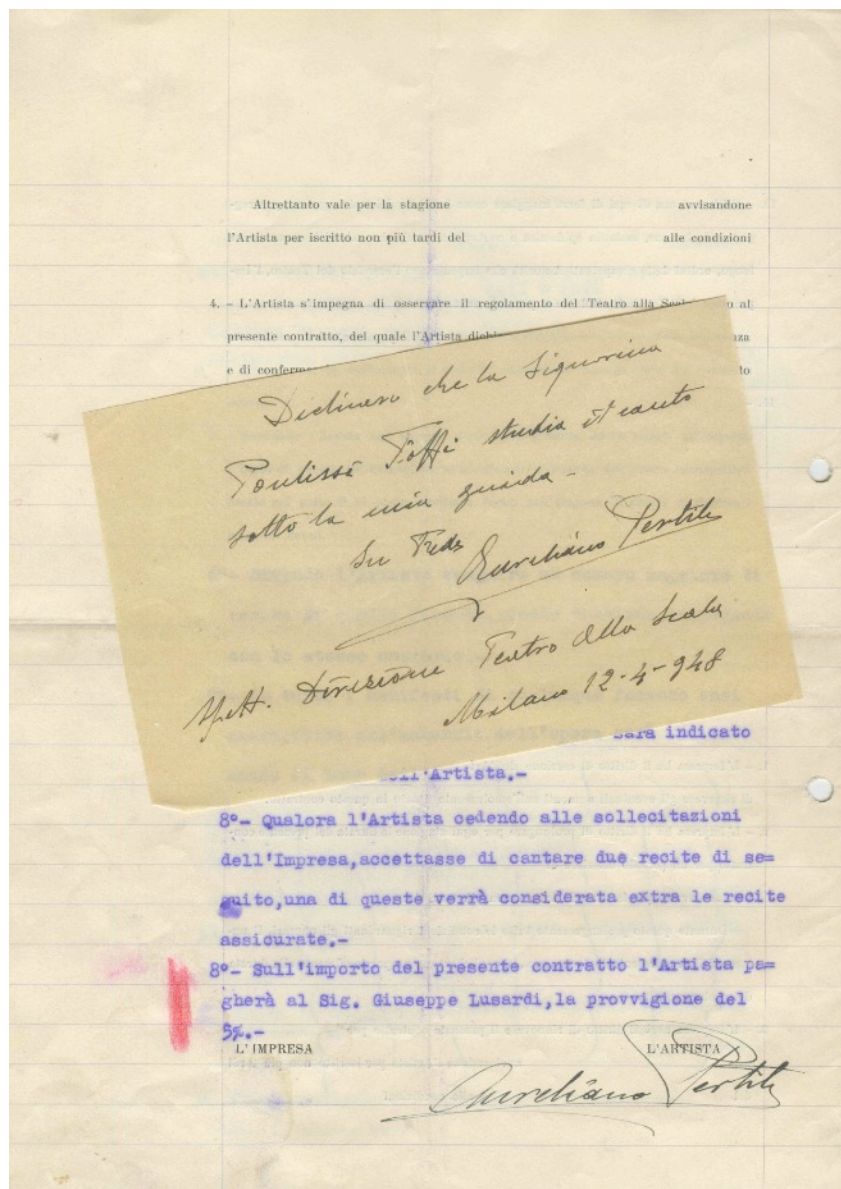 Altrettanto vale per la stagione avvisandone
l'Artista per iscritto non più tardi del alle condizioni
4. – L'Artista s'impegna di osservare il regolamento del Teatro alla al
presente contratto, del quale l'Artista
e di
Dichiaro che la Signorina
Toffi studia il canto
sotto la mia guida –
In Fede Aureliano Pertile
Spett. Direzione Teatro alla Scala
Milano 12-4-948
sarà indicato
dell'Artista.-
8º- Qualora l'Artista cedendo alle sollecitazioni
dell'Impresa,accettasse di cantare due recite di se=
guito,una di queste verrà considerata extra le recite
assicurate.-
8º- Sull'importo del presente contratto l'Artista pa=
gherà al Sig. Giuseppe Lusardi,la provvigione del
5%.-
L'IMPRESA L'ARTISTA
Aureliano Pertile